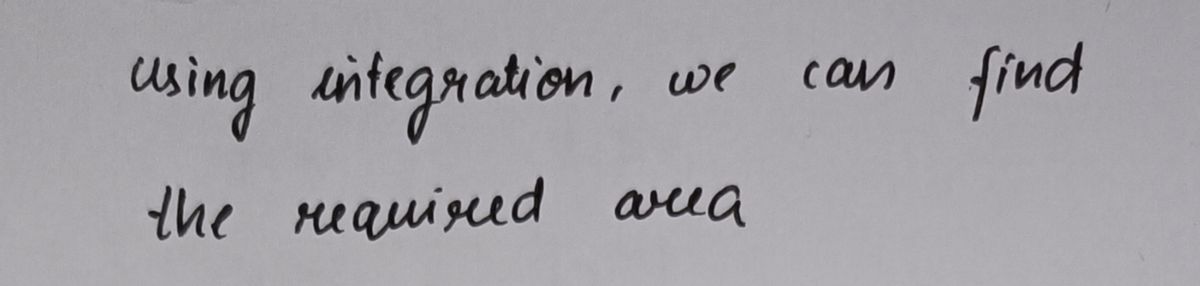 using integration, we can find
the required area